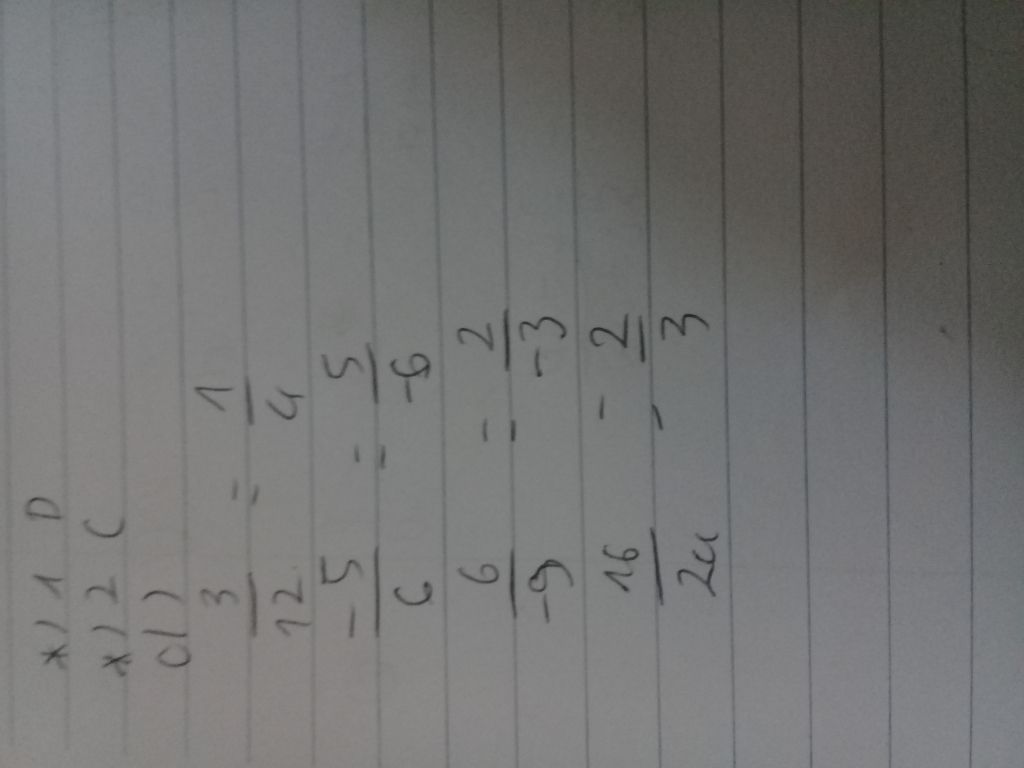 *) 1 D
*) 2 C
c) 1)
3/12 = 1/4
-5/6 = 5/-6
6/-9 = 2/-3
16/24 = 2/3